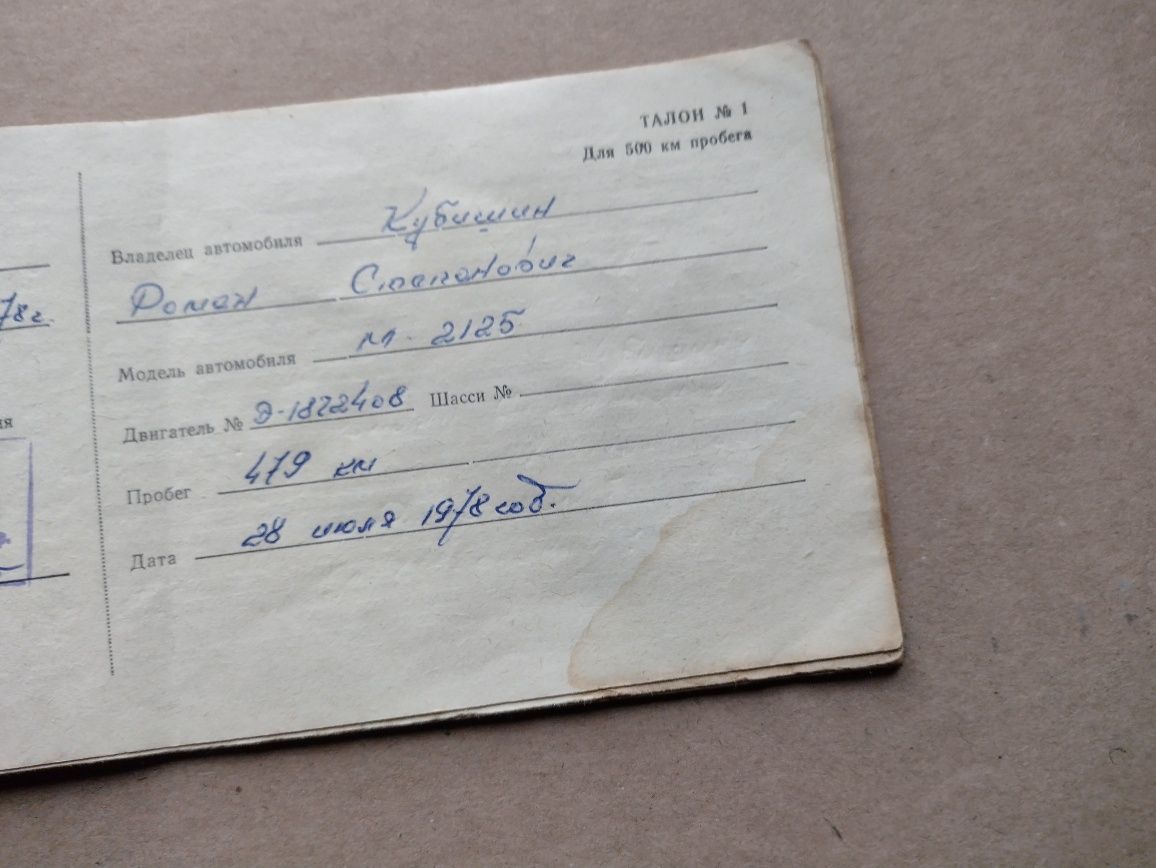 ТАЛОН № 1
Для 500 км пробега
Владелец автомобиля Кубишин
Роман Степанович
Модель автомобиля М-2125
Двигатель № Э-1872408 Шасси №
Пробег 479 км
Дата 28 июля 1978 год.
78г.
ия